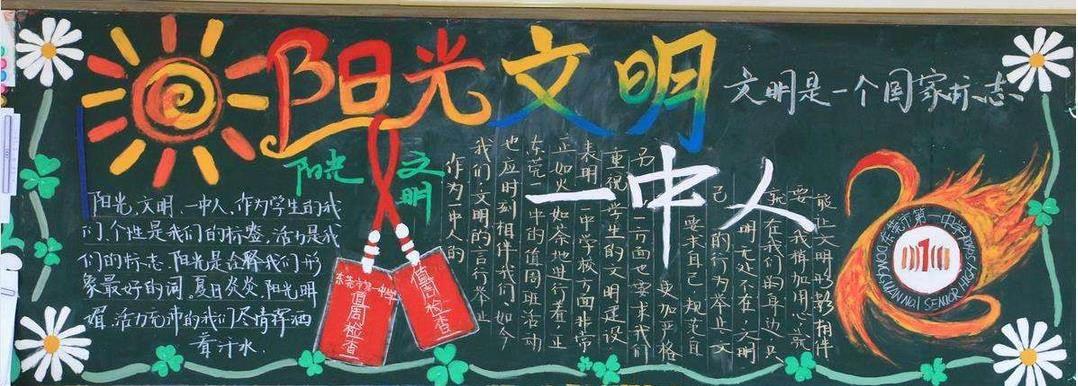 阳光文明
文明是一个国家标志
一中人
阳光 文明
阳光、文明、一中人,作为学生的我
们,个性是我们的标签,活力是我
们的标志。阳光是诠释我们形
象最好的词。夏日炎炎,阳光明
媚,活力充沛的我们尽情挥洒
着汗水.
东莞市第一中学
值周检查
值周检查
作为一中人的
我们,文明的言行举止
也应时刻相伴我们。如今
东莞一中的值周班活动
正如火如荼地进行着,正
表明一中学校方面非常
重视学生的文明建设
另一方面也要求我们
更加严格
要求自己,规范自
己的行为举止。文
明无处不在,文明
就在我们的身边,只
要我们稍加用心,就
能让文明形影相伴
东莞市第一中学
DONGGUAN NO.1 SENIOR HIGH